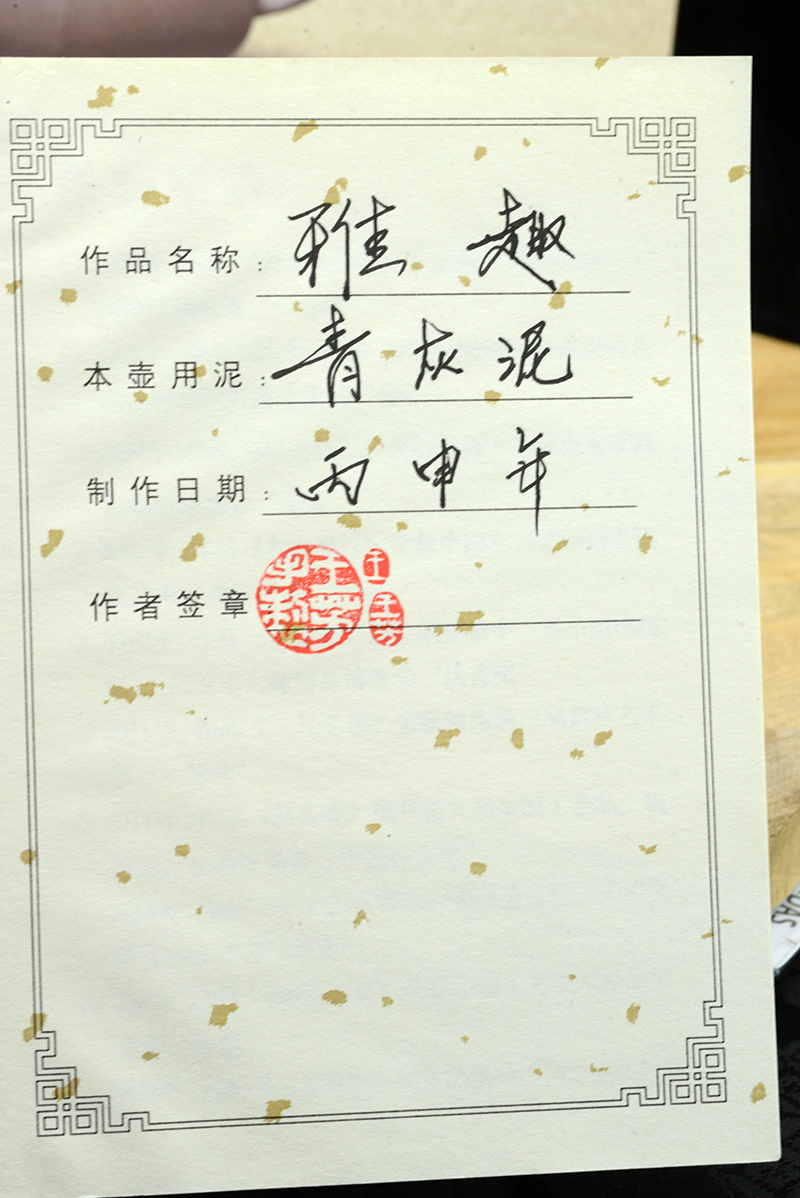 作品名称：雅趣
本壶用泥：青灰泥
制作日期：丙申年
作者签章